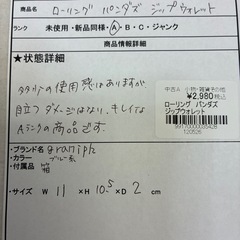 商品名 ローリング パンダズ ジップウォレット
ランク 未使用・新品同様・A・B・C・ジャンク
★状態詳細
多少の使用感はありますが、
目立つダメージはなく、キレイな
Aランクの商品です。
中古A 小物・雑貨その他
¥2,980税込
ローリング パンダズ
ジップウォレット
120526
・ブランド名 graniph
・カラー ブルー系
・付属品 箱
・サイズ W 11 ×H 10.5 ×D 2 cm